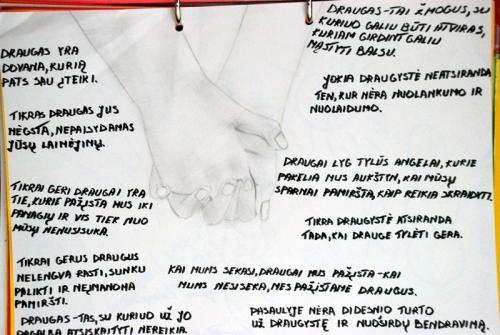 DRAUGAS YRA
DOVANA, KURIĄ
PATS SAU ĮTEIKI.
TIKRAS DRAUGAS JUS
MĖGSTA, NEPAISYDAMAS
JŪSŲ LAIMĖJIMŲ.
TIKRAI GERI DRAUGAI YRA
TIE, KURIE PAŽĮSTA MUS IKI
PANAGIŲ IR VIS TIEK NUO
MŪSŲ NENUSISUKA.
TIKRAI GERUS DRAUGUS
NELENGVA RASTI, SUNKU
PALIKTI IR NEĮMANOMA
PAMIRŠTI.
DRAUGAS-TAS, SU KURIUO UŽ JO
PAGALBĄ ATSISKAITYTI NEREIKIA.
DRAUGAS-TAI ŽMOGUS, SU
KURIUO GALIU BŪTI ATVIRAS,
KURIAM GIRDINT GALIU
MĄSTYTI BALSU.
JOKIA DRAUGYSTĖ NEATSIRANDA
TEN, KUR NĖRA NUOLANKUMO IR
NUOLAIDUMO.
DRAUGAI LYG TYLŪS ANGELAI, KURIE
PAKELIA MUS AUKŠTYN, KAI MŪSŲ
SPARNAI PAMIRŠTA, KAIP REIKIA SKRAIDYTI.
TIKRA DRAUGYSTĖ ATSIRANDA
TADA, KAI DRAUGE TYLĖTI GERA.
KAI MUMS SEKASI, DRAUGAI MUS PAŽĮSTA-KAI
MUMS NESISEKA, MES PAŽĮSTAME DRAUGUS.
PASAULYJE NĖRA DIDESNIO TURTO
UŽ DRAUGYSTĘ IR NUOŠIRDŲ BENDRAVIMĄ.